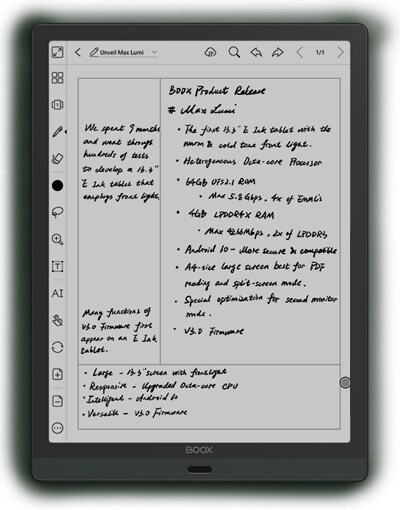 Unveil Max Lumi
1/1
BOOX Product Release
# Max Lumi
We spent 9 months
and went through
hundreds of tests
to develop a 13.3"
E Ink tablet that
employs front light.
• The first 13.3" E Ink tablet with the
warm & cold tone front light.
• Heterogenous Octa-core Processor
• 64GB UFS2.1 ROM
• Max 5.8Gbps. 4x of EMMCs
• 4GB LPDDR4X RAM
• Max 4266Mbps. 2x of LPDDR3
• Android 10 - More secure & compatible
• A4-size large screen best for PDF
reading and split-screen mode.
• Special optimization for second monitor
mode.
• V3.0 Firmware
Many functions of
V3.0 Firmware first
appear on an E Ink
tablet.
• Large - 13.3" screen with frontlight
• Responsive - Upgraded Octa-core CPU
• Intelligent - Android 10
• Versatile - V3.0 Firmware
T
AI
BOOX